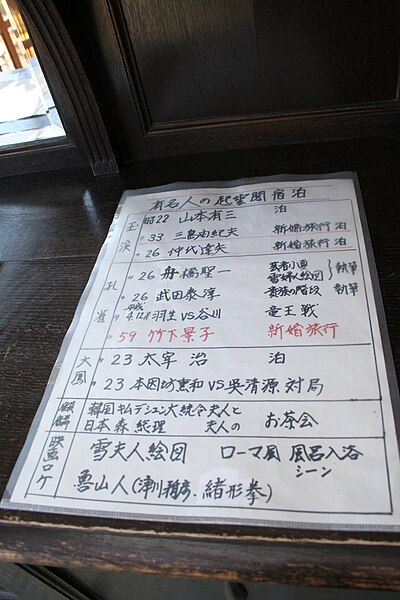 有名人の起雲閣宿泊
玉渓 昭22 山本有三 泊
〃33 三島由紀夫 新婚旅行 泊
〃26 仲代達矢 新婚旅行 泊
孔雀 〃26 舟橋聖一 芸者小夏 雪夫人絵図 執筆
〃26 武田泰淳 貴族の階段 執筆
平成4.12月 羽生VS谷川 竜王戦
〃59 竹下景子 新婚旅行
大鳳 〃23 太宰治 泊
〃23 本因坊薫和VS呉清源 対局
麒麟 韓国キムデジュン大統令夫人と
日本森総理 夫人の お茶会
映画ロケ 雪夫人絵図 ローマ風 風呂入浴シーン
魯山人(津川雅彦.緒形拳)